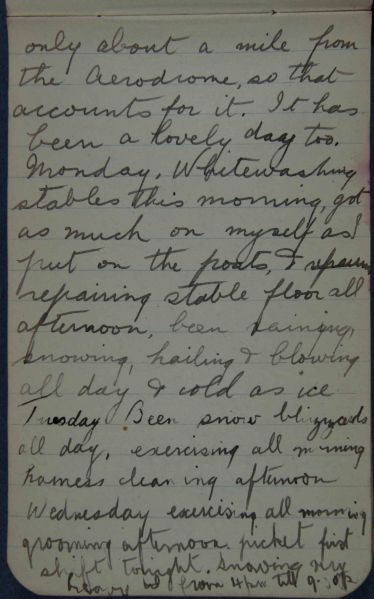 only about a mile from
the Aerodrome, so that
accounts for it. It has
been a lovely day too.
Monday. Whitewashing
stables this morning, got
as much on myself as I
put on the posts, &
repairing stable floor all
afternoon, been raining,
snowing, hailing & blowing
all day & cold as ice
Tuesday Been snow blizzards
all day, exercising all morning
harness cleaning afternoon
Wednesday exercising all morning
grooming afternoon. picket first
shift tonight. snowing very
heavy from 4 pm till 9.30